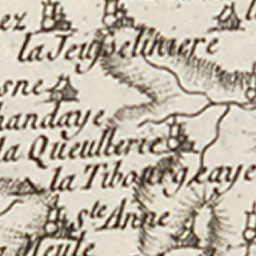 ez
la Jeusseliniere
sne
handaye
la Queullerie
la Tibourgeaye
s.te Anne
Meule